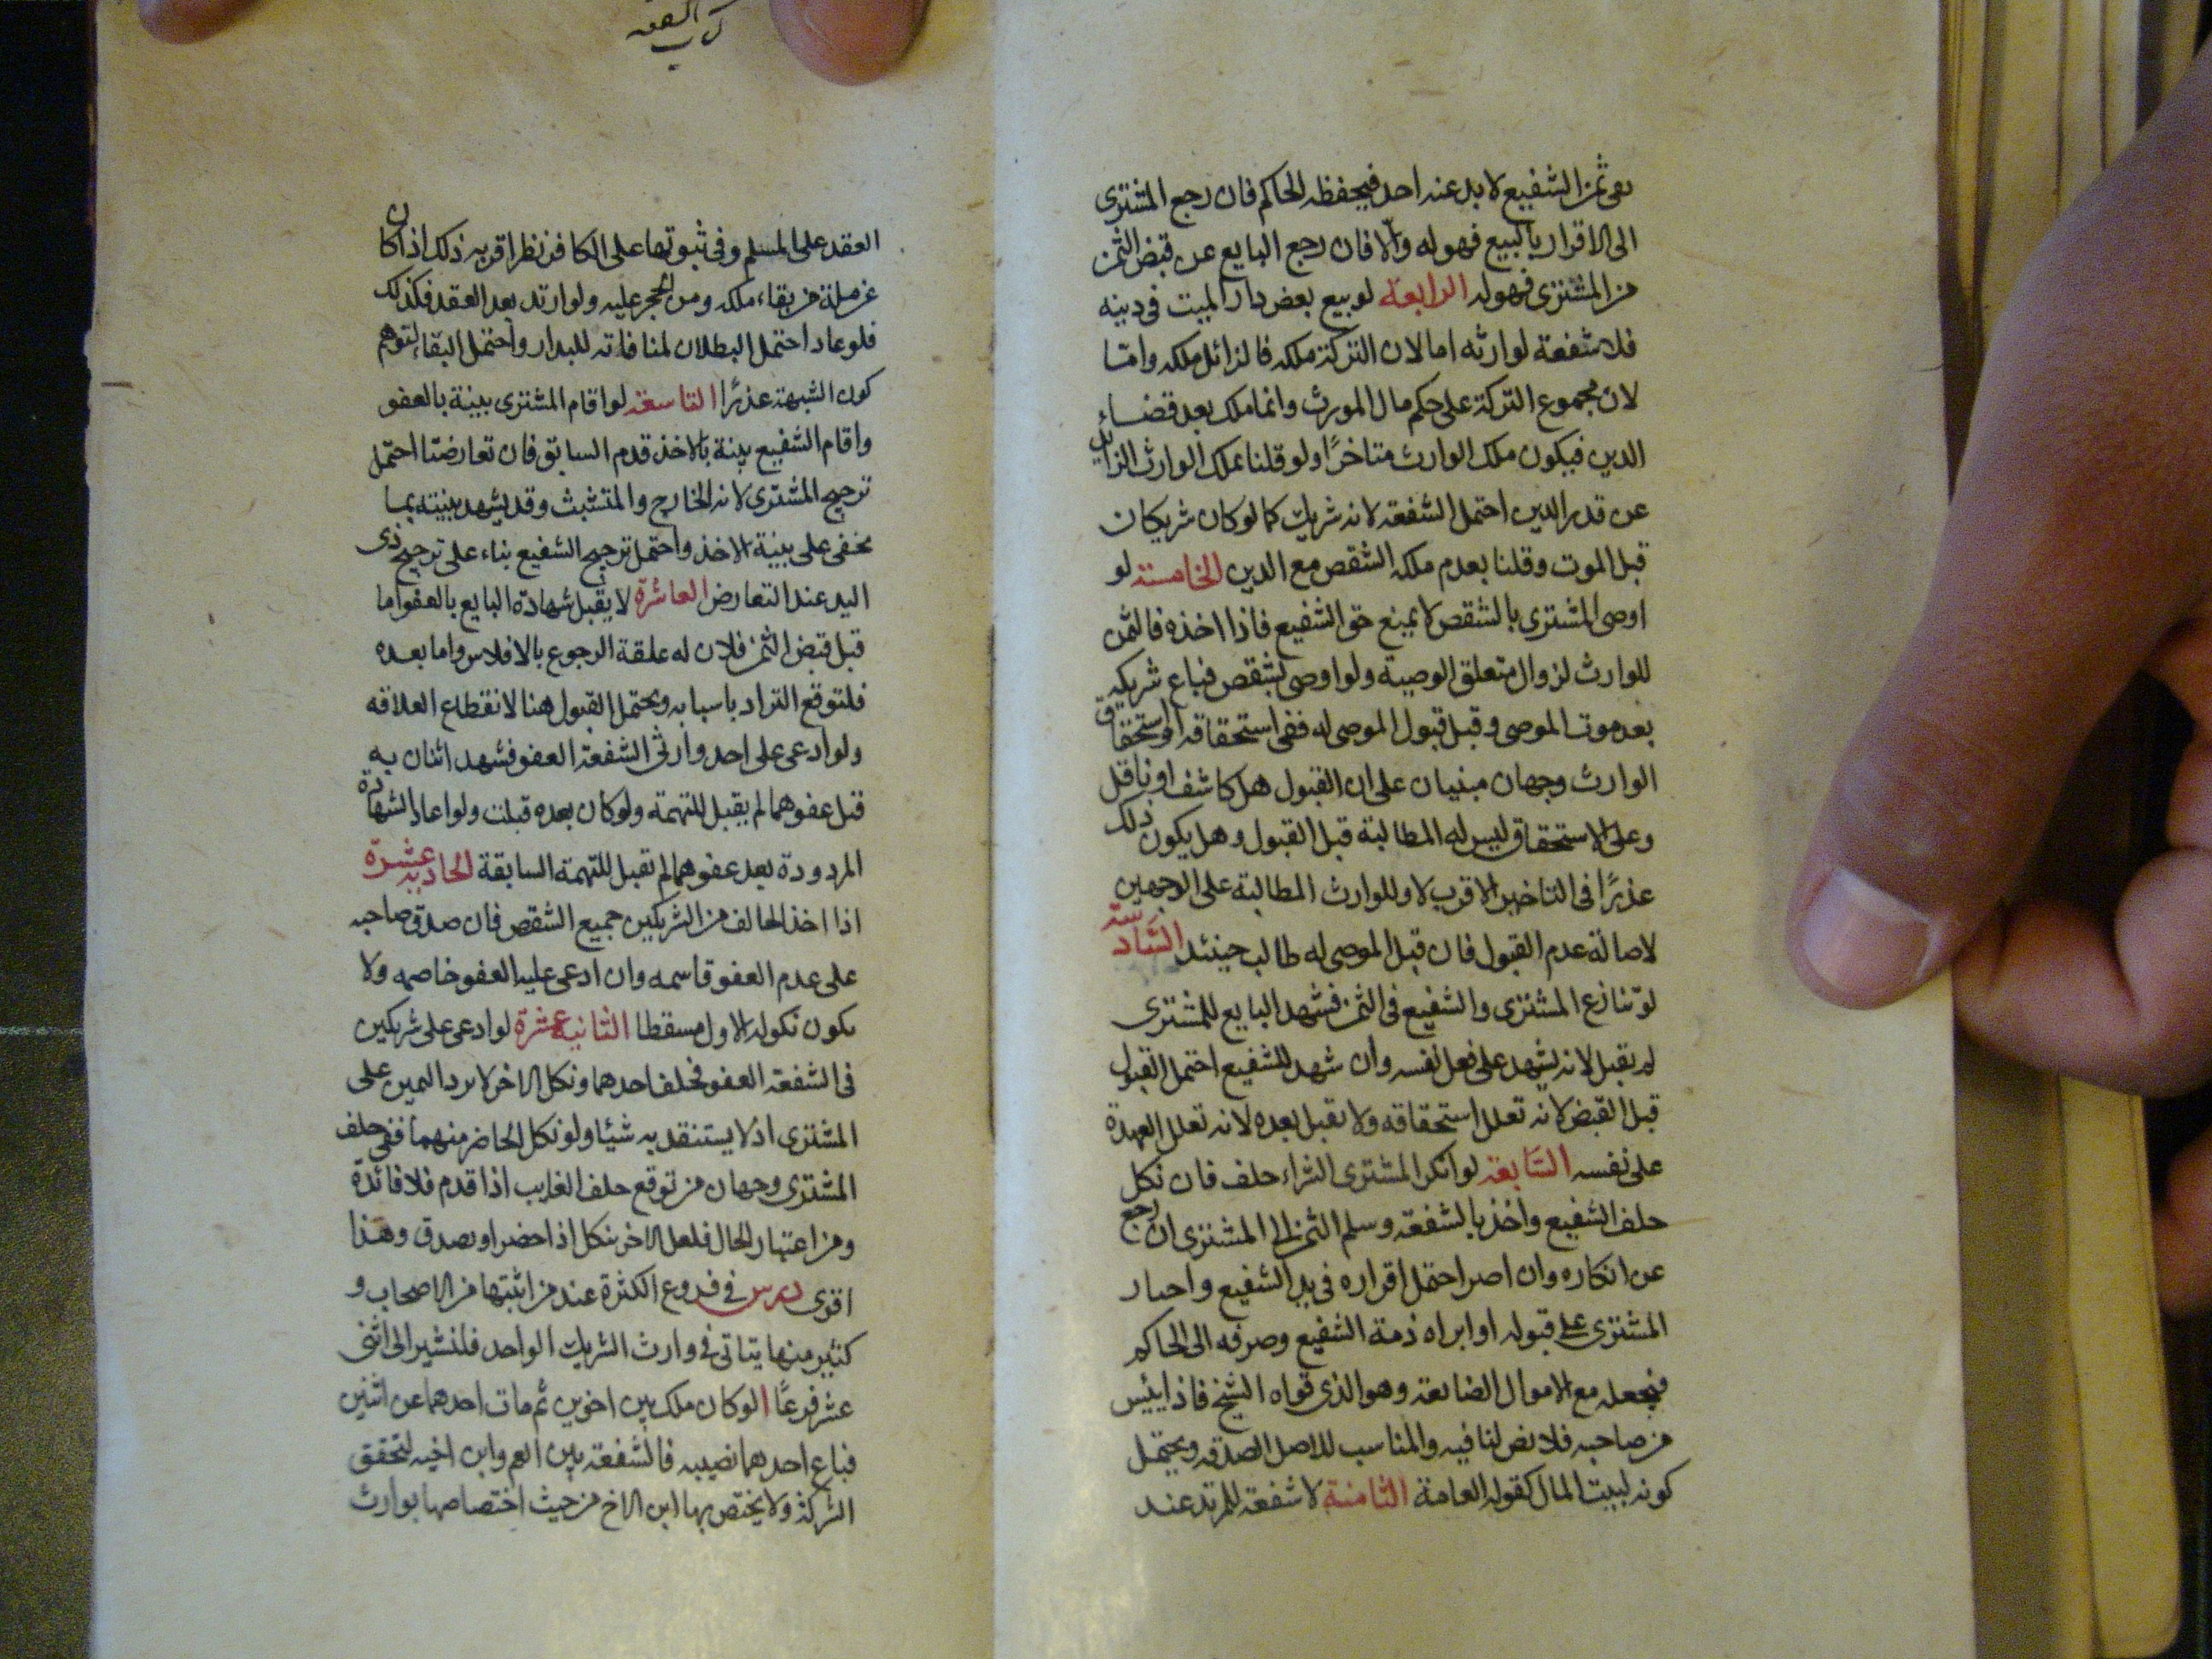 بقى ثمن الشفيع لا يدعيه احد فيحفظه الحاكم فان رجع المشترى
الى الاقرار بالبيع فهو له والا فان رجع البايع عن قبض الثمن
من المشترى فهو له الرابعة لو بيع بعض دار الميت فى دينه
فلا شفعة لوارثه اما لان التركة ملكه فالزائل ملكه واما
لان مجموع التركة على حكم مال المورث وانما ملك بعد قضاء
الدين فيكون ملك الوارث متاخرًا ولو قلنا بملك الوارث الزايد
عن قدر الدين احتمل الشفعة لانه شريك كما لو كان شريكان
قبل الموت وقلنا بعدم ملكه الشقص مع الدين الخامسة لو
اوصى المشترى بالشقص لا يمنع حق الشفيع فاذا اخذه فالثمن
للوارث لزوال متعلق الوصية ولو اوصى بشقص فباع شريكه
بعد موت الموصى وقبل قبول الموصى له ففى استحقاقه او استحقاق
الوارث وجهان مبنيان على ان القبول هل كاشف او ناقل
وعلى الاستحقاق ليس له المطالبة قبل القبول وهل يكون ذلك
عذرًا فى التاخير الاقرب لا وللوارث المطالبة على الوجهين
لاصالة عدم القبول فان قبل الموصى له طالب حينئذ السادسة
لو تنازع المشترى والشفيع فى الثمن فشهد البايع للمشترى
لم يقبل لانه يشهد على فعل نفسه وان شهد للشفيع احتمل القبول
قبل القبض لانه تعلل استحقاقه ولا يقبل بعده لانه تعلل العهدة
على نفسه السابعة لو انكر المشترى الشراء حلف فان نكل
حلف الشفيع واخذ بالشفعة وسلم الثمن الى المشترى ان رجع
عن انكاره وان اصر احتمل اقراره فى يد الشفيع واجبار
المشترى على قبوله او ابراء ذمة الشفيع وصرفه الى الحاكم
فيجعله مع الاموال الضائعة وهو الذى قواه الشيخ فاذا ايئس
من صاحبه فلا نص لنا فيه والمناسب للاصل الصدقه ويحتمل
كونه لبيت المال كقول العامة الثامنة لا شفعة للمرتد عند
كتاب الشفعه
العقد على المسلم وفى ثبوتها على الكافر نظر اقربه ذلك اذا كان
عن ملة من بقاء ملكه ومن الحجر عليه ولو ارتد بعد العقد فكذلك
فلو عاد احتمل البطلان لمنافاته للبدار واحتمل البقاء لتوهم
كون الشبهة عذرًا التاسعة لو اقام المشترى بينة بالعفو
واقام الشفيع بينة بالاخذ قدم السابق فان تعارضتا احتمل
ترجيح المشترى لانه الخارج والمتشبث وقد يشهد ببينته بما
يخفى على بينة الاخذ واحتمل ترجيح الشفيع بناء على ترجيح ذى
اليد عند التعارض العاشرة لا يقبل شهادة البايع بالعفو اما
قبل قبض الثمن فلان له علقة الرجوع بالافلاس واما بعده
فلتوقع التراد باسبابه ويحتمل القبول هنا لانقطاع العلاقه
ولو ادعى على احد وارثى الشفعة العفو فشهد اثنان به
قبل عفوهما لم يقبل للتهمة ولو كان بعده قبلت ولو اعاد الشهادة
المردودة بعد عفوهما لم تقبل للتهمة السابقة الحادية عشرة
اذا اخذ الحالف من الشريكين جميع الشقص فان صدق صاحبه
على عدم العفو قاسمه وان ادعى عليه العفو خاصمه ولا
يكون نكوله الاول مسقطا الثانية عشرة لو ادعى على شريكين
فى الشفعة العفو فحلف احدهما ونكل الاخر لا يرد اليمين على
المشترى اذ لا يستنقد به شيئا ولو نكل الحاضر منهما ففى حلف
المشترى وجهان من توقع حلف الغايب اذا قدم فلا فائدة
ومن اعتبار الحال فلعل الاخر ينكل اذا حضر او يصدق وهذا
اقوى درس فى فروع الكثرة عند من اثبتها من الاصحاب و
كثير منها يتاتى فى وارث الشريك الواحد فلنشير الى اثنى
عشر فرعًا ا لو كان ملك بين اخوين ثم مات احدهما عن اثنين
فباع احدهما نصيبه فالشفعة بين العم وابن اخيه لتحقق
الشركة ولا يختص بها ابن الاخ من حيث اختصاصها بوارث